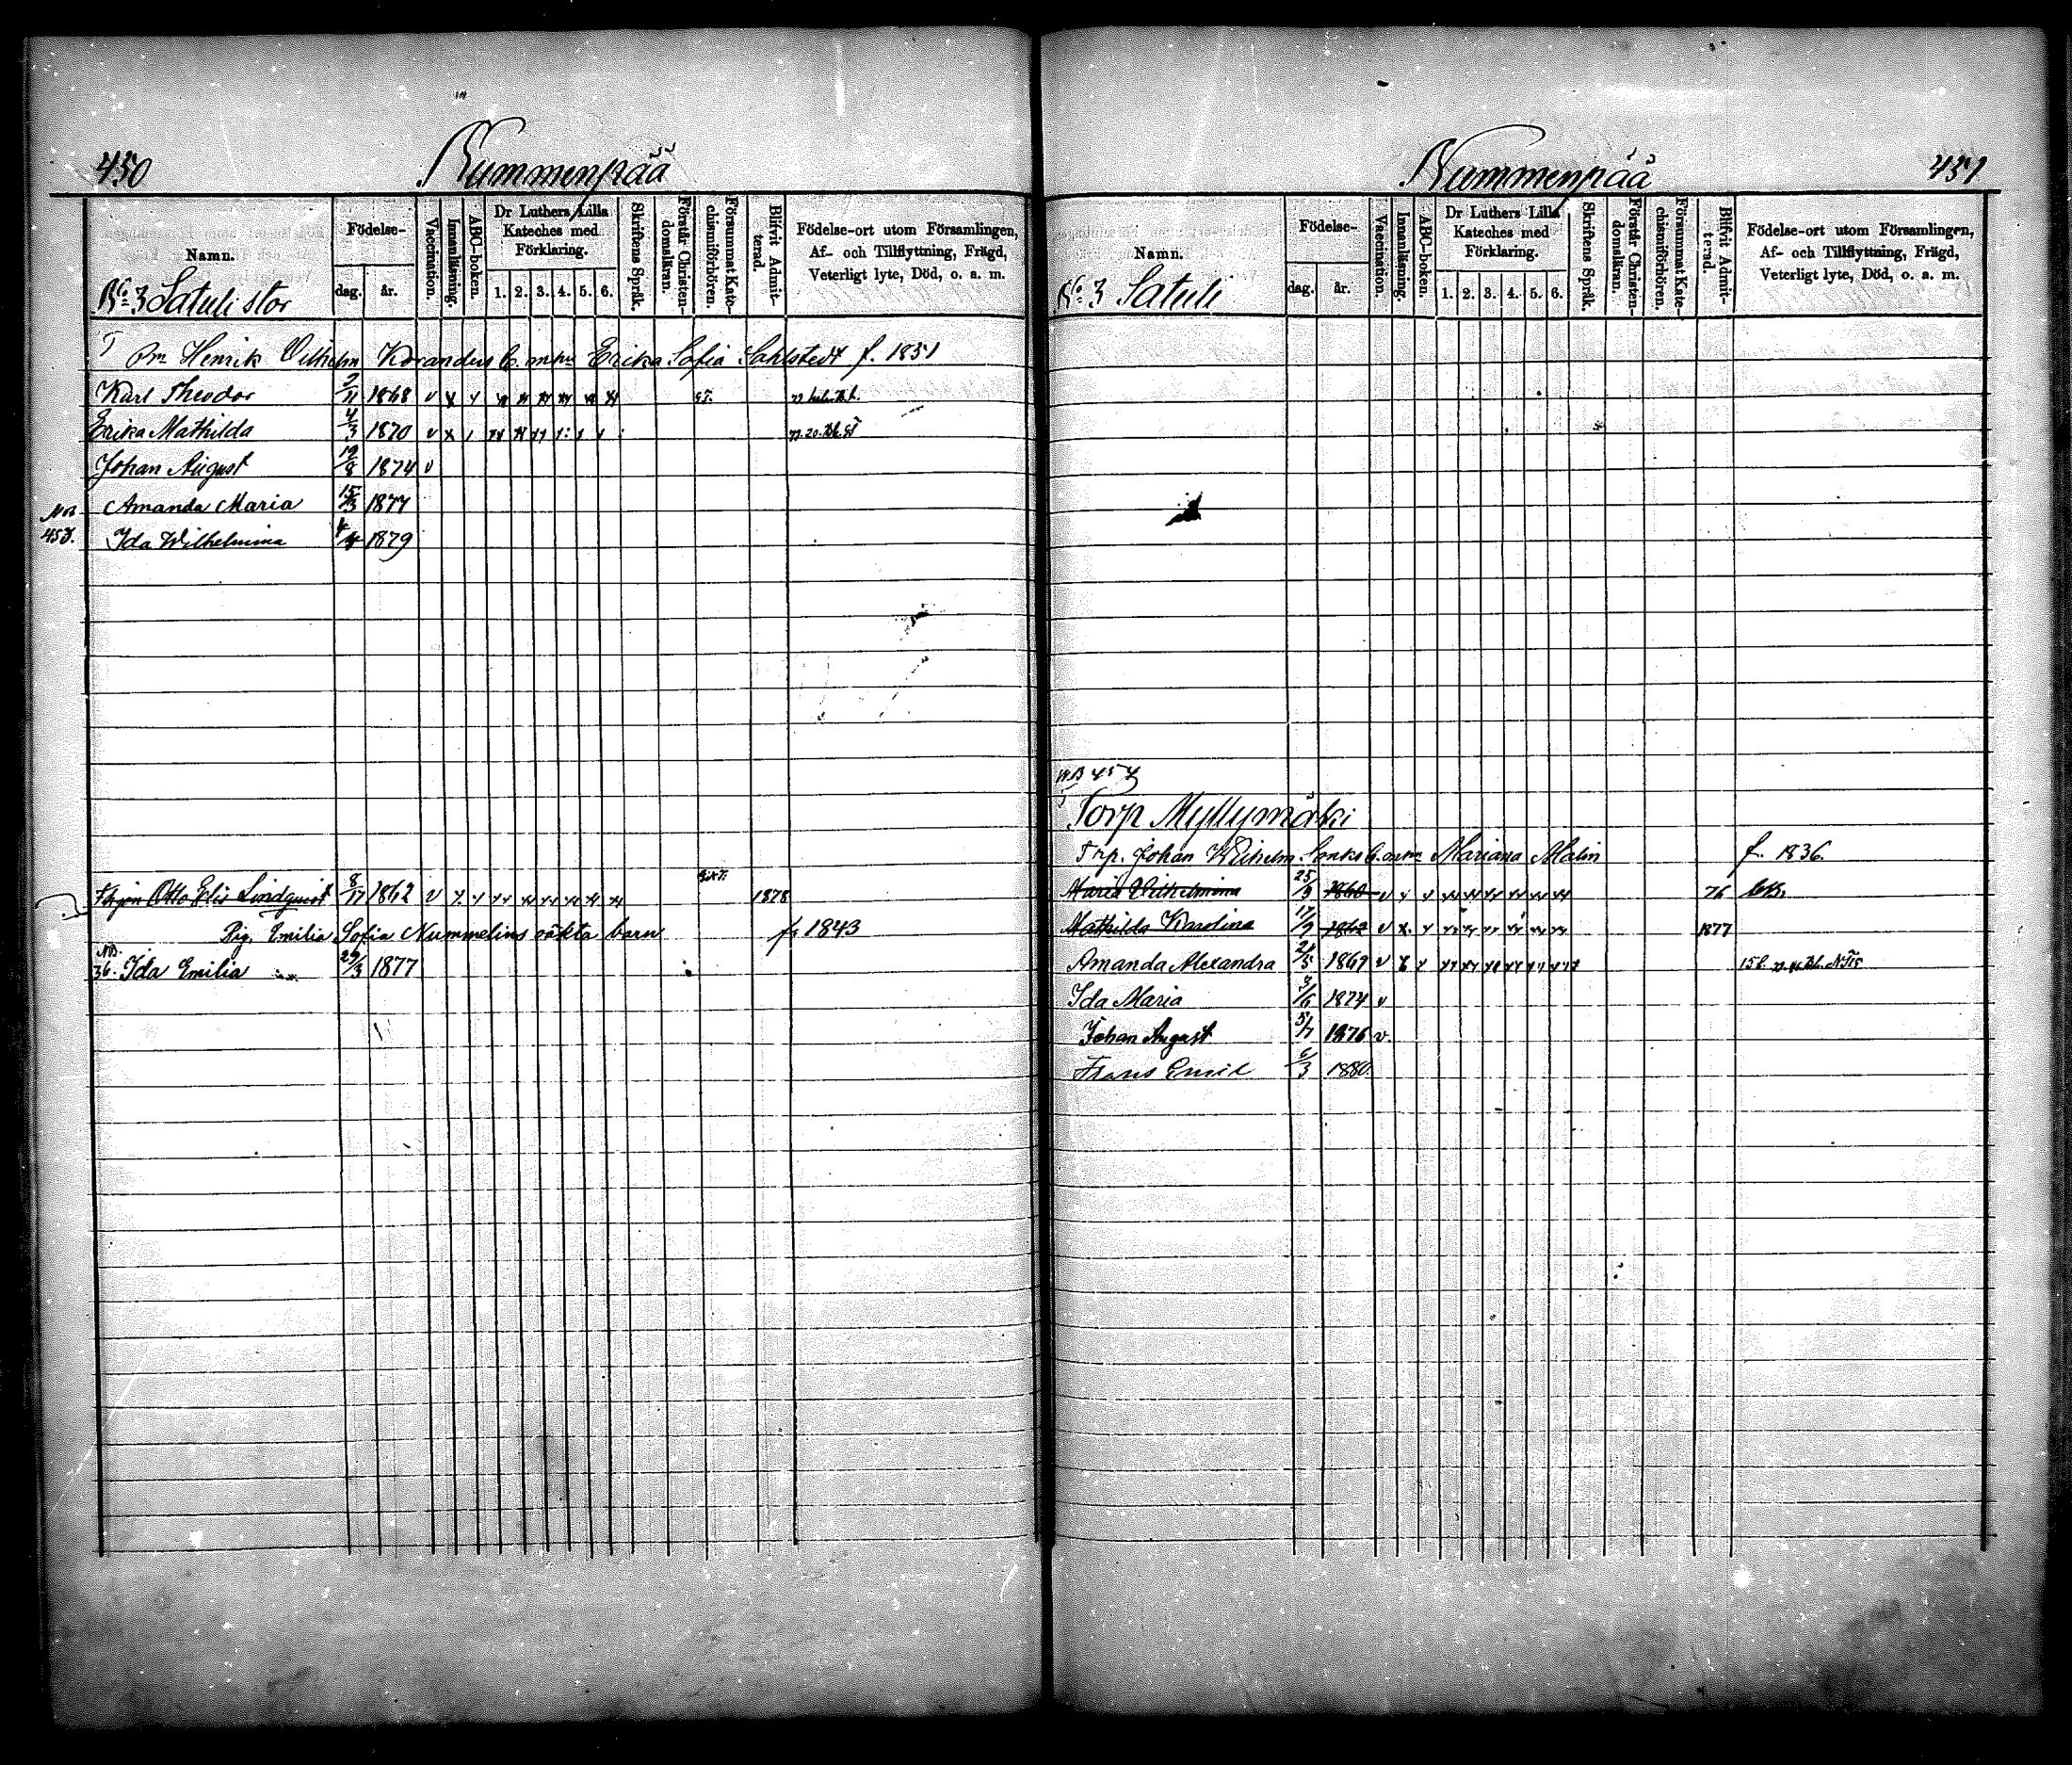 450
Nummenpää
Namn.
Födelse-
dag.
år.
Vaccination.
Innanläsning.
ABC-boken.
Dr Luthers Lilla Kateches med Förklaring.
1. 2. 3. 4. 5. 6.
Skriftens Språk.
Förstår Christendomslkran.
Försummat Katechismiförhören.
Blifvit Admitterad.
Födelse-ort utom Församlingen,
Af- och Tillflyttning, Frägd,
Veterligt lyte, Död, o. a. m.
No 3 Satuli stor
Bm Henrik Vilhelm Korander b. m hu Erika Sofia Sahlstedt f. 1851
Karl Theodor 2/11 1868 v
Erika Mathilda 4/3 1870 v
Johan August 19/8 1874 v
Amanda Maria 15/3 1877
Ida Wilhelmina 4/4 1879
Otto Elis Lindqvist 8/17 1862 v 1878
Pig. Emilia Sofia Nummelins oäkta barn f. 1843
NB. 36. Ida Emilia 29/3 1877
Nummenpää
451
Namn.
Födelse-
dag.
år.
Vaccination.
Innanläsning.
ABC-boken.
Dr Luthers Lilla Kateches med Förklaring.
1. 2. 3. 4. 5. 6.
Skriftens Språk.
Förstår Christendomslkran.
Försummat Katechismiförhören.
Blifvit Admitterad.
Födelse-ort utom Församlingen,
Af- och Tillflyttning, Frägd,
Veterligt lyte, Död, o. a. m.
No 3 Satuli
NB 457
Torp Myllymäki
Trp. Johan Wilhelm b. m hu Mariana Malin f. 1836.
Maria Wilhelmina 25/9 1860 v 76
Mathilda Karolina 17/9 1862 v 1877
Amanda Alexandra 24/5 1869 v
Ida Maria 3/6 1874 v
Johan August 5/7 1876 v.
Frans Emil 6/3 1880.